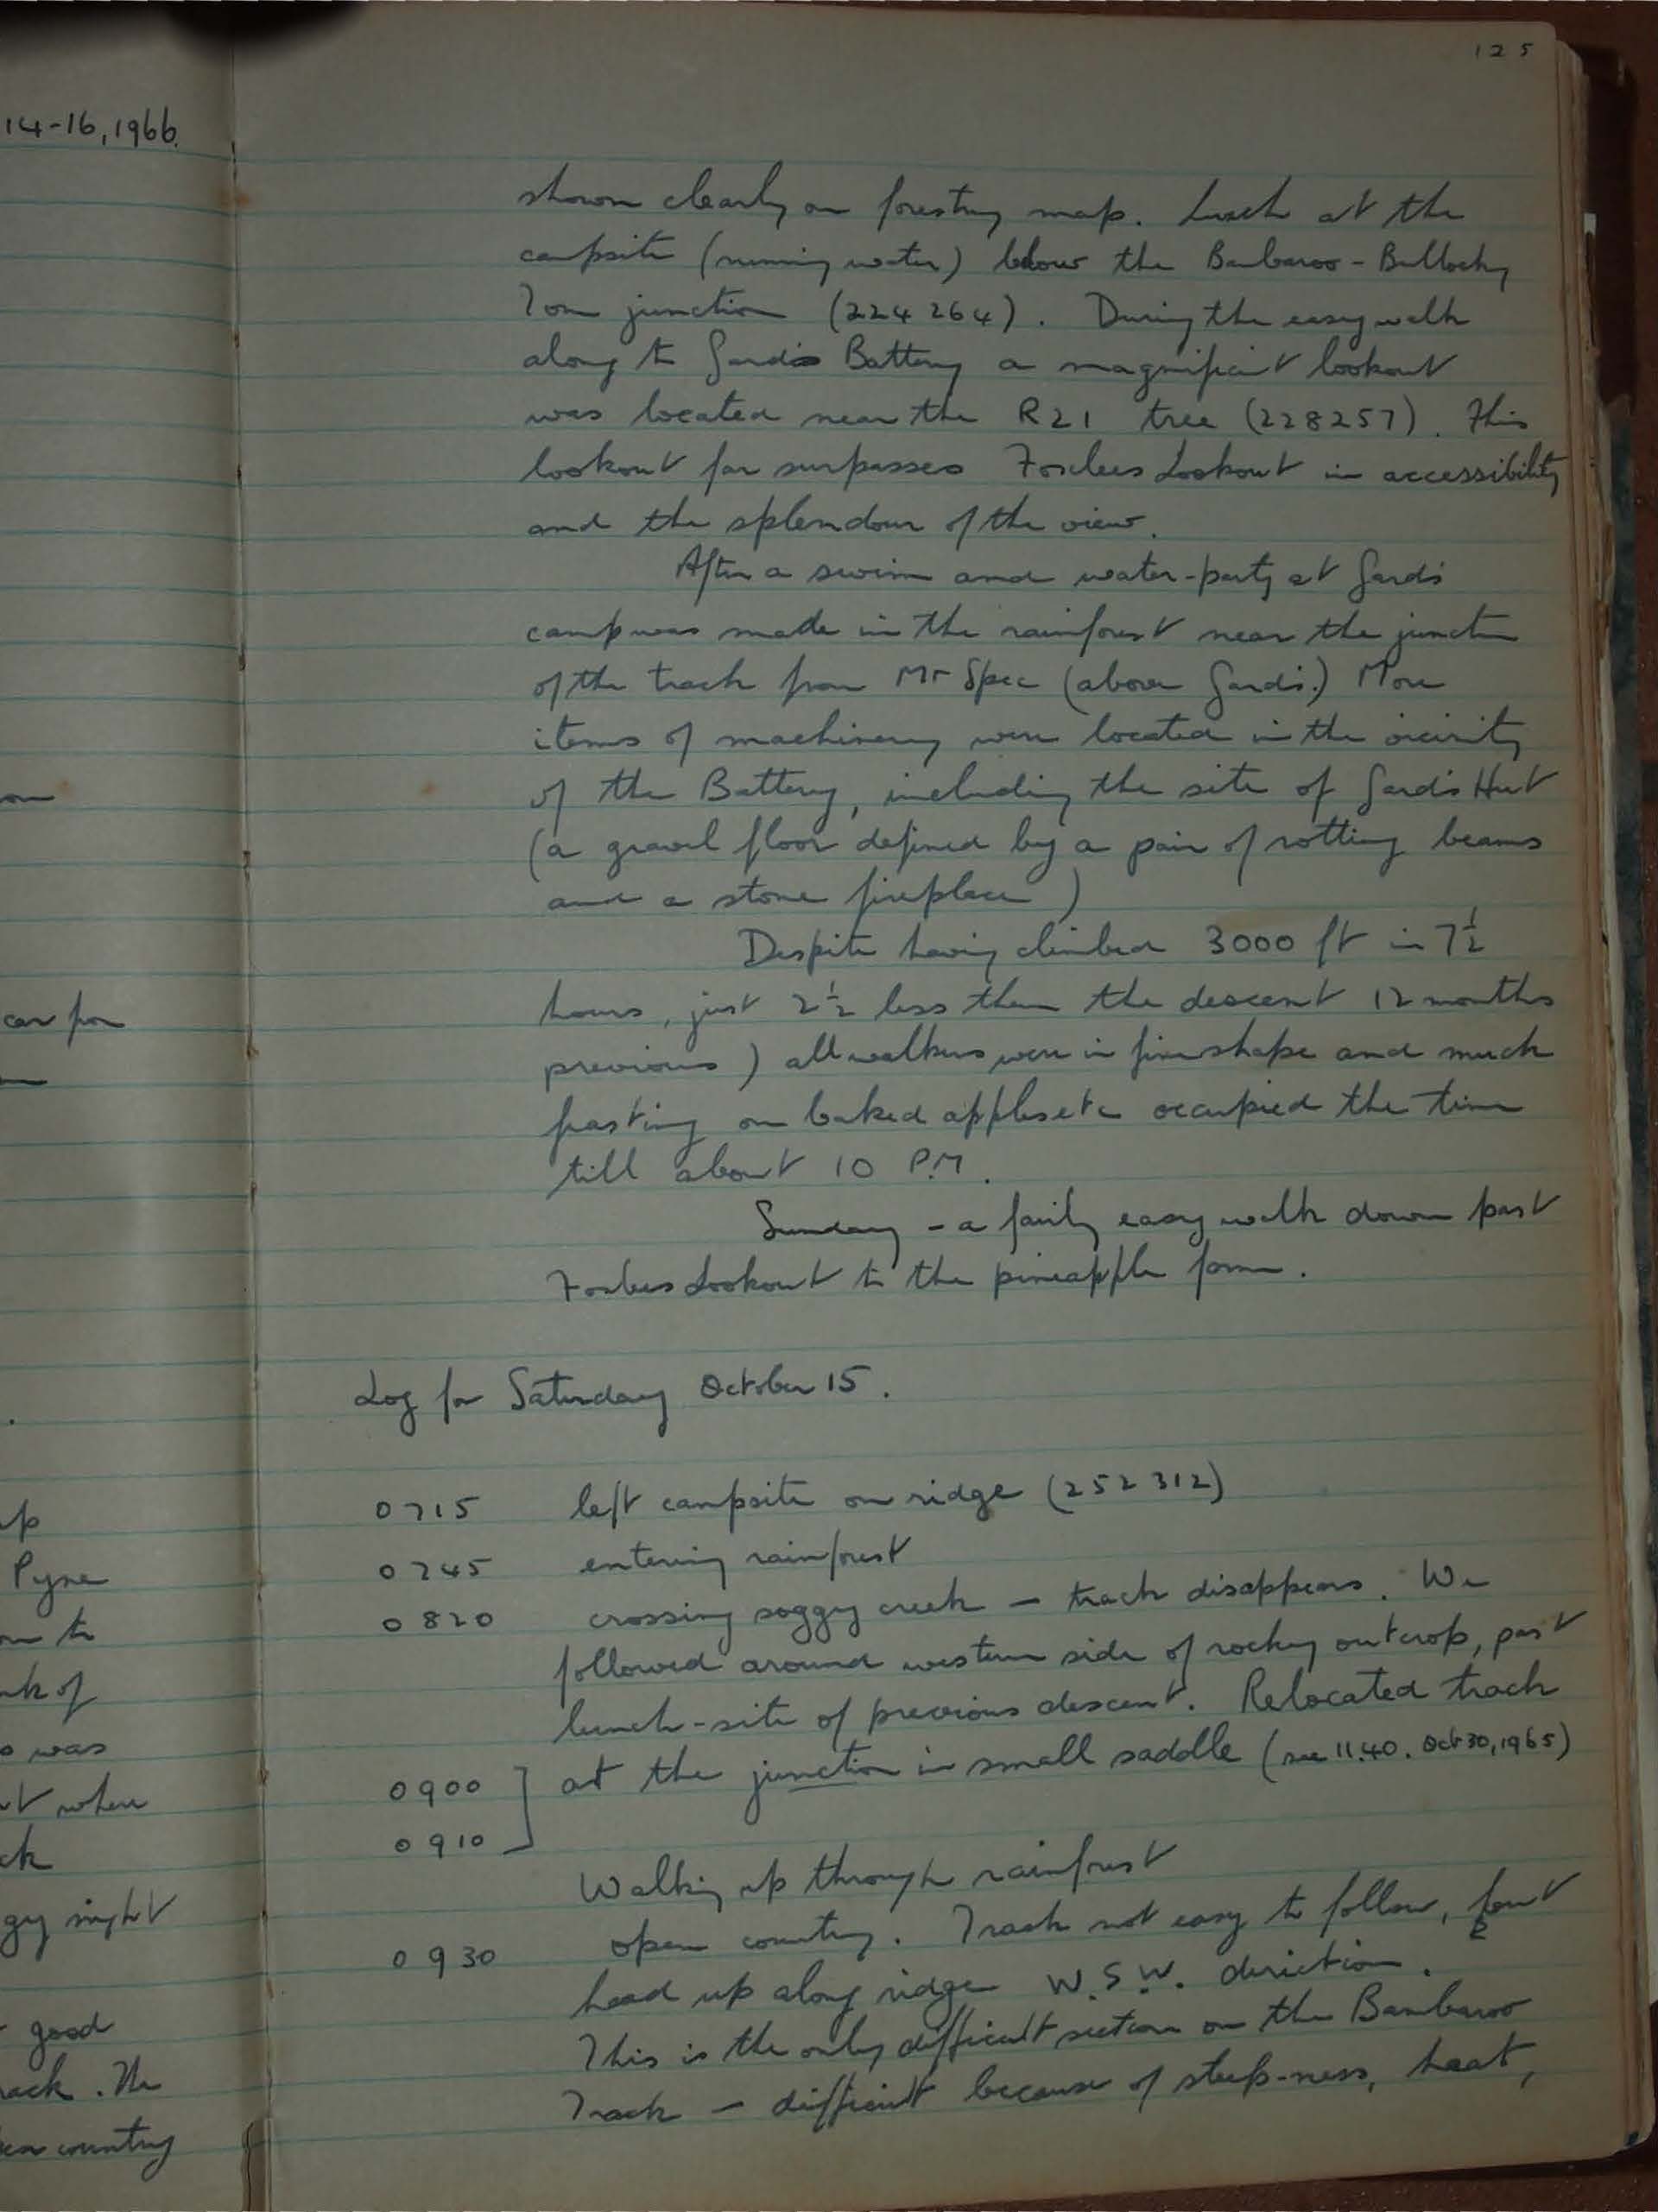 125
14-16, 1966.
shown clearly on forestry map. Lunch at the
campsite (running water) below the Bambaroo - Bullocky
Tom junction (224 264). During the easy walk
along to Gard's Battery a magnificent lookout
was located near the R21 tree (228257). This
lookout far surpasses Foxlees Lookout in accessibility
and the splendour of the view.
After a swim and water-party at Gard's
camp was made in the rainforest near the junction
of the track from Mt Spec (above Gard's.) More
items of machinery were located in the vicinity
of the Battery, including the site of Gard's Hut
(a gravel floor defined by a pair of rotting beams
and a stone fireplace)
Despite having climbed 3000 ft in 7½
hours, just 2½ less than the descent 12 months
previous) all walkers were in fine shape and much
feasting on baked apples etc occupied the time
till about 10 P.M.
Sunday - a fairly easy walk down past
Foxlees Lookout to the pineapple farm.
Log for Saturday October 15.
0715 left campsite on ridge (252 312)
0745 entering rainforest
0820 crossing soggy creek - track disappears. We
followed around western side of rocky outcrop, past
lunch-site of previous descent. Relocated track
0900 ] at the junction in small saddle (see 11.40. Oct 30, 1965)
0910
Walking up through rainforest
0930 open country. Track not easy to follow, but
head up along ridge W.S.W. direction.
This is the only difficult section on the Bambaroo
Track - difficult because of steep-ness, heat,
car for
Pyne
was
when
night
good
track. The
country